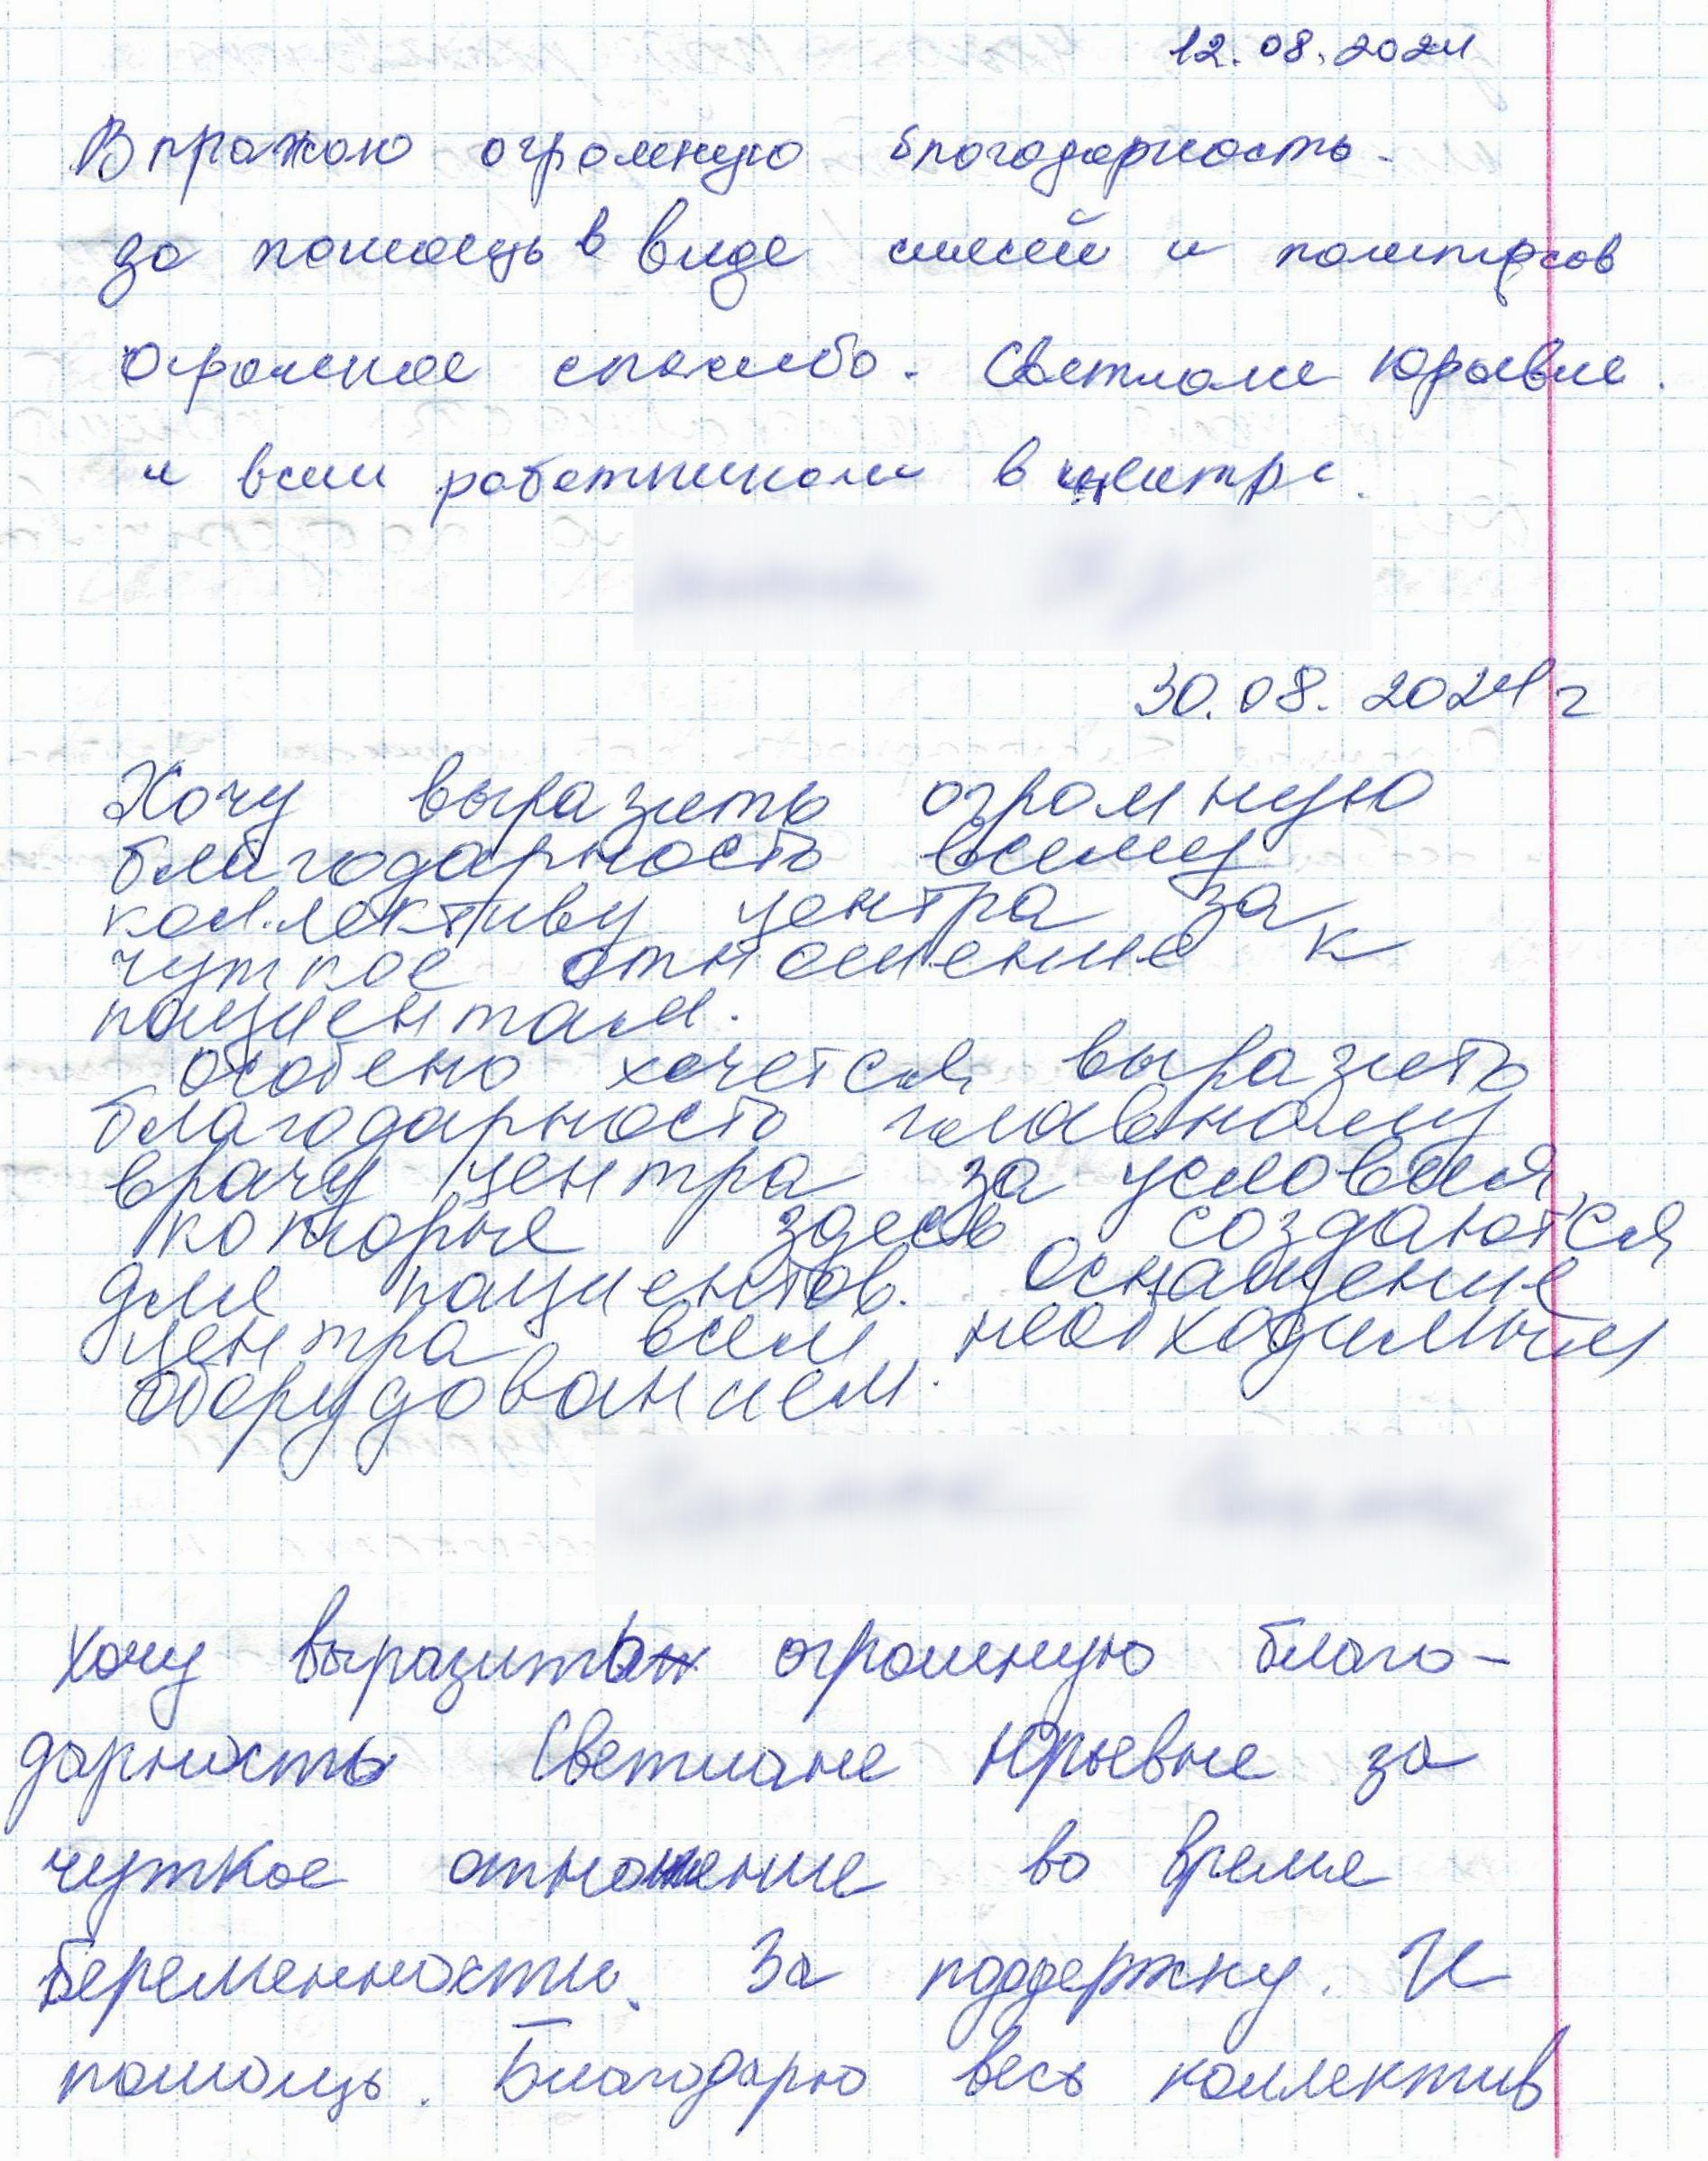 12.08.2024
Впражаю огромную благодарность.
за помощь в виде смесей и памперсов
Огромное спасибо. Светлане Юрьевне.
и всем работникам в центре.
30.08.2024 г
Хочу выразить огромную
благодарность всему
коллективу центра за
чуткое отношение к
пациентам.
особено хочется выразить
благодарность главному
врачу центра за условия,
которые здесь создаются
для пациентов. Оснащение
центра всем необходимым
оборудованием.
Хочу выразить огромную благо-
дарность Светлане Юрьевне за
чуткое отношение во время
беременности. За поддержку. И
помощь. Благодарю весь коллектив